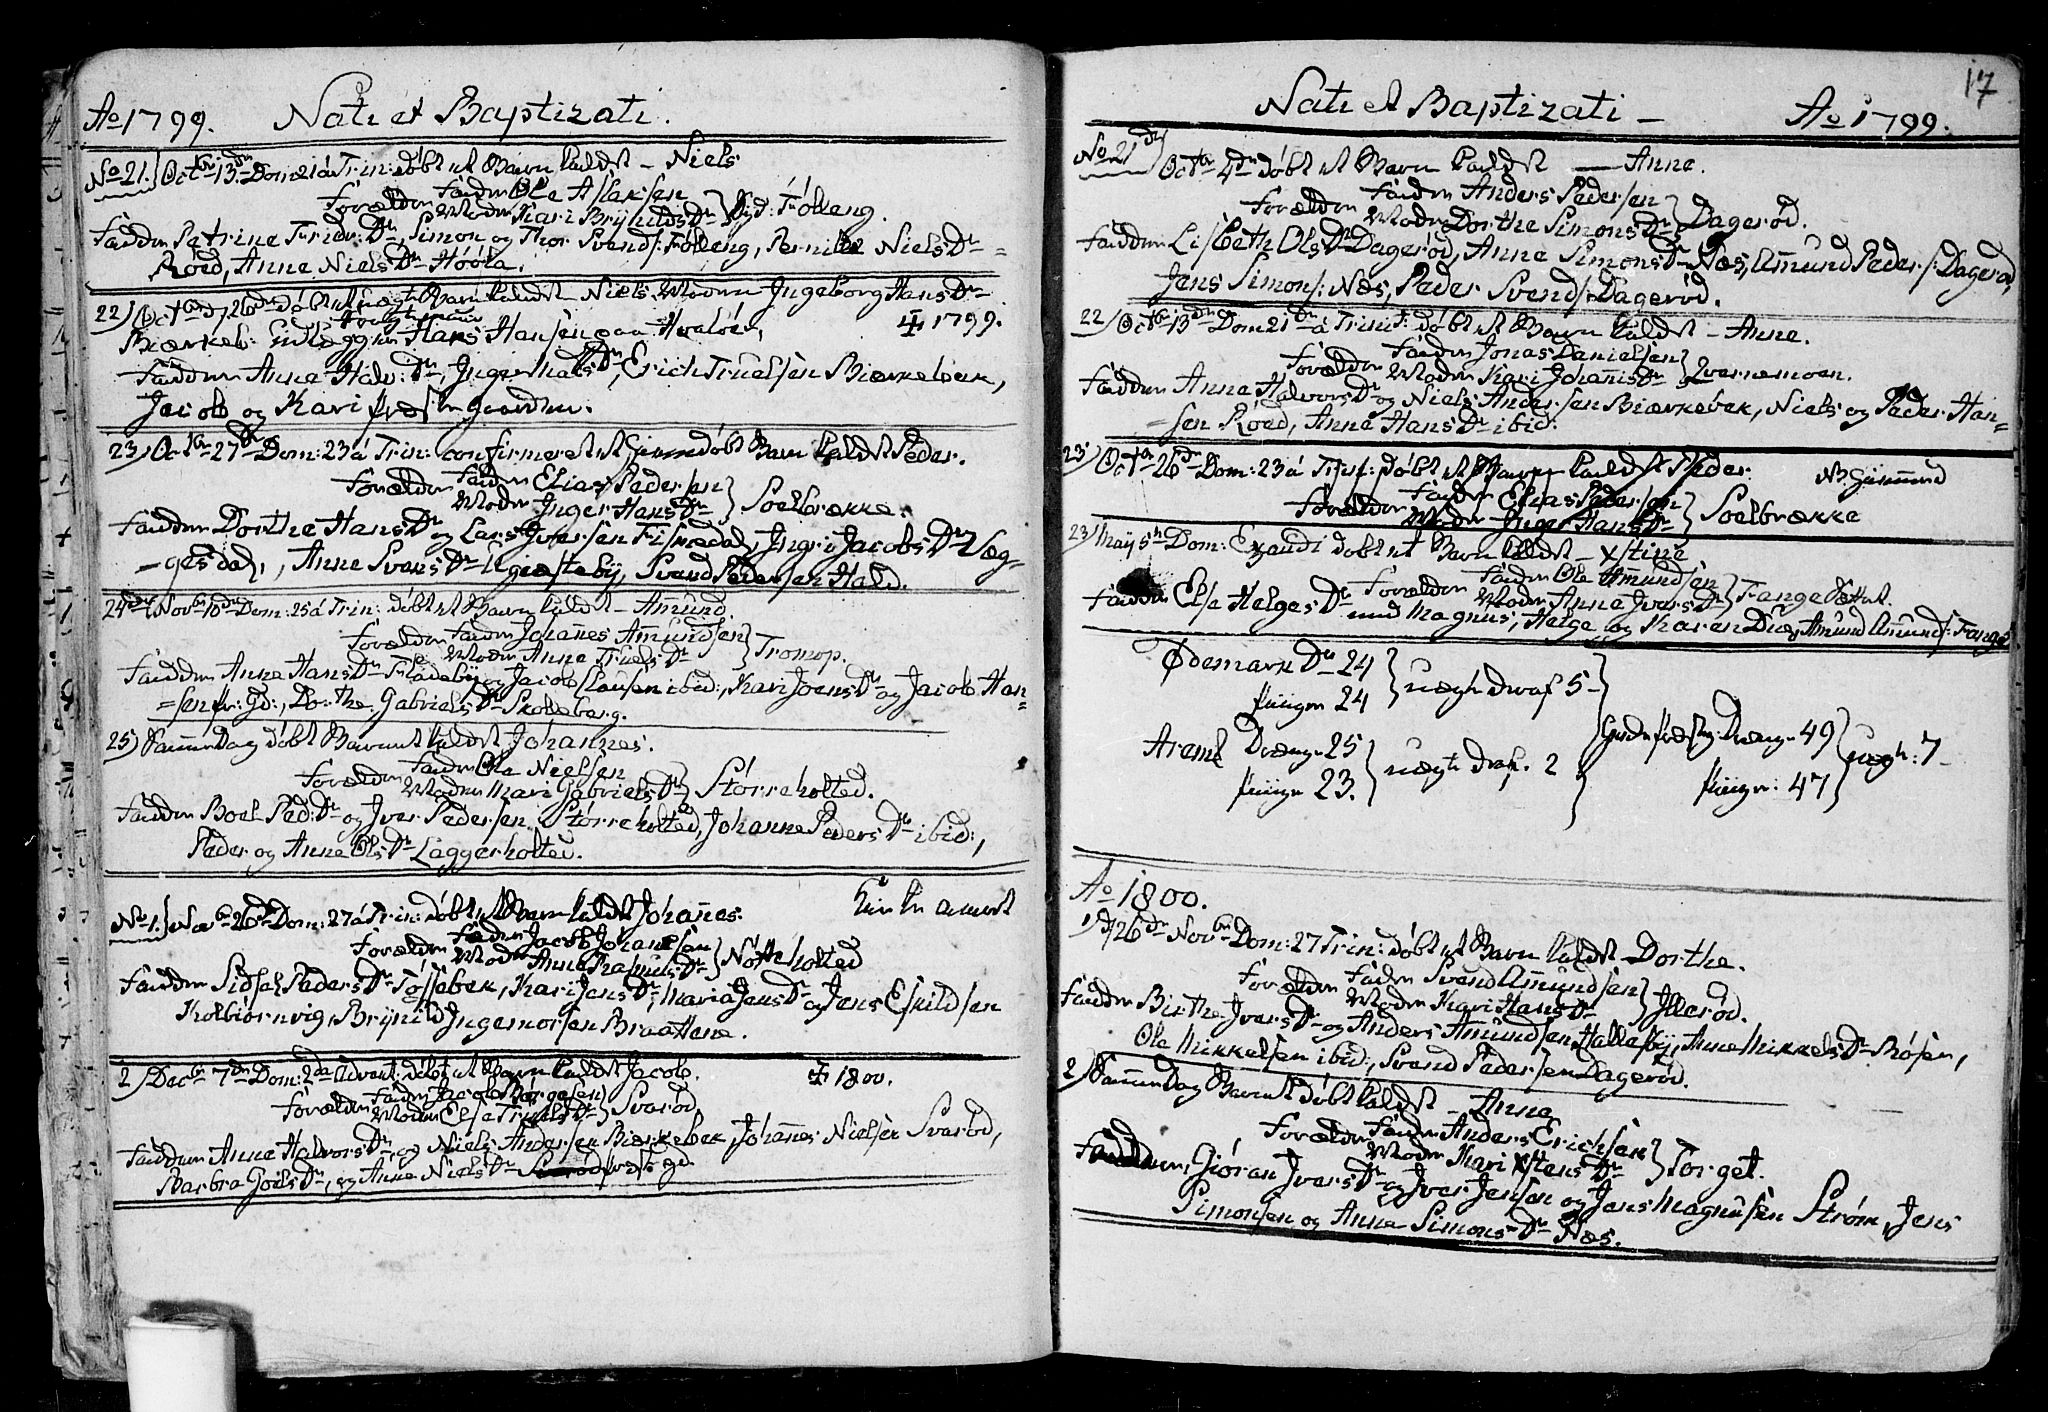 Ao 1799. Nati et Baptizati.
No 21. Octbr 13de Dom: 21 à Trin: døbt et Barn kaldt – Niels
Forældre Faderen Ole Aslaksen
Moderen Kari Brynilds Dr
Fadderne Petrine Fridr: Dr Simon og Thor Svends: Følleng, Pernille Niels Dr
Røed, Anne Niels Dr
22) Octbr 26de døbt et uægte Barn kaldt Niels. Moderen Ingeborg Hans Dr
Biærkeb: Udlægger Hans Hansen paa Hvaløer, 1799.
Fadderne Anne Halv: Dr, Inger Mats Dr, Erich Truelsen Biærkebek,
Jacob og Kari Præstegaarden.
23) Octbr 27de Dom: 23 à Trin: confirmeret et hjemmedøbt Barn kaldt Peder.
Forældre Faderen Elias Pedersen
Moderen Inger Hans Dr
Soelbrække.
Fadderne Dorthe Hans Dr og Lars Iversen Fismedal, Ingri Jacobs Dr Væg=
=gesdal, Anne Svens Dr, Svend Pedersen Hald.
24de Novbr 10de Dom: 25 à Trin: døbt et Barn kaldt – Amund
Forældre Faderen Johannes Amundsen
Moderen Anne Truels Dr
Tromop.
Fadderne Anne Hans Dr Fladeby og Jacob Clausen ibid:, Kari Joens Dr og Jacob Han=
=sen Pr: Gd:, Dorthe Gabriels Dr Skolleberg.
25) Samme Dag døbt Barnet kaldt Johannes.
Forældre Faderen Ole Nielsen
Moderen Mari Gabriels Dr
Størreholted.
Fadderne Boel Ped: Dr og Iver Pedersen Størreholted, Johanne Peders Dr ibid:,
Peder og Anne Ols Dr Laggerholted.
No 1. Novbr 26de Dom: 27 à Trin: døbt et Barn kaldt Johannes.
Forældre Faderen Jacob Johansen
Moder Anne Rasmus Dr
Nøtteholted
Fadderne Sidsel Peders Dr Tossebek, Kari Jens Dr, Maria Jens Dr og Jens Eskildsen
Kolbiørnvig, Brynild Ingemorsen Braatene.
2) Decbr 7de Dom: 2da Advent: døbt et Barn kaldt Jacob. 1800.
Forældre Faderen Jacob Børgesen
Moderen Else Truels Dr
Svarød
Fadderne Anne Halvors Dr og Niels Andersen Biærkebek, Johannes Nielsen Svarød,
Barbra Joels Dr, og Anne Niels Dr Præstegd.
17
Nati et Baptizati – Ao 1799.
No 21 Octbr 4de døbt et Barn kaldt – Anne.
Forældre Faderen Anders Pedersen
Moder Dorthe Simons Dr
Dagerød.
Fadderne Lisbeth Ols Dr Dagerød, Anne Simons Dr Næs, Amund Peders: Dagerød,
Jens Simons: Næs, Peder Svends: Dagerød.
22) Octbr 13de Dom 21de à Trinit: døbt et Barn kaldt – Anne.
Forældre Faderen Jonas Danielsen
Moder Kari Johanis Dr
Qvernemoen.
Fadderne Anne Halvors Dr og Niels Andersen Biærkebek, Niels og Peder Han=
=sen Røed, Anne Hans Dr ibid:
23) Octbr 26de Dom: 23 à Trin: døbt et Barn kaldt Peder
Forældre Faderen Elias Pedersen
Moder Inger Hans Dr
Soelbrække
23) May 5te Dom: Exaudi døbt et Barn kaldt – Xstine
Forældre Faderen Ole Amundsen
Moder Anne Ivers Dr
Fadderne Else Helges Dr Magnus, Helge og Karen Due, Amund Amunds: Fange
Ødemark Dr 24
Piiger 24
uægte deraf 5
Aremk Drænge 25
Piiger 23.
uægte deraf. 2
Drænge 49
Piiger: 47
uægte: 7
Ao 1800.
1) 26de Novbr Dom: 27 Trin: døbt et Barn kaldt – Dorthe.
Forældre Fader Svend Amundsen
Moder Kari Hans Dr
Illerød.
Fadderne Birthe Ivers Dr og Anders Amundsen Hallesby, Anne Mikkels Dr Bøsen,
Ole Mikkelsen ibid:, Svend Pedersen Dagerød.
2) Samme Dag Barnet døbt kaldt – Anne
Forældre Fader Anders Erichsen
Moder Kari Xstens Dr
Torget.
Fadderne, Gjøran Ivers Dr og Iver Jensen og Jens Magnusen Strøm, Jens
Simonsen og Anne Simons Dr Næs.